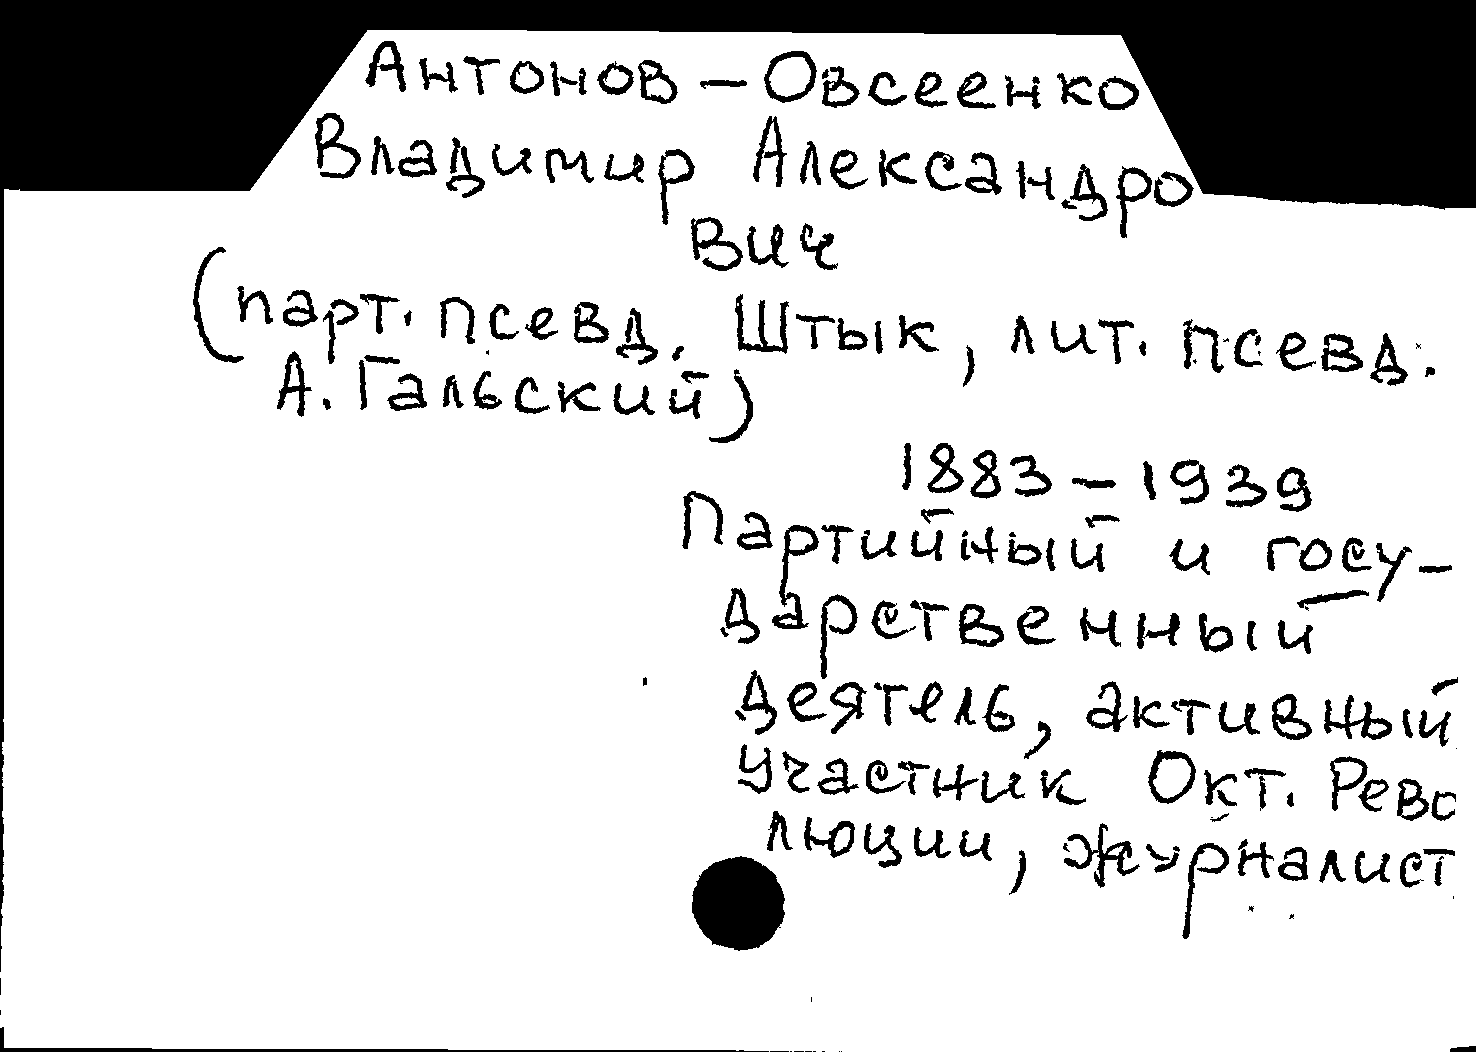 Антонов – Овсеенко
Владимир Александро
вич
(парт. псевд. Штык, лит. псевд.
А. Гальский)
1883 – 1939
Партийный и госу-
дарственный
деятель, активный
участник Окт. Рево
люции, журналист